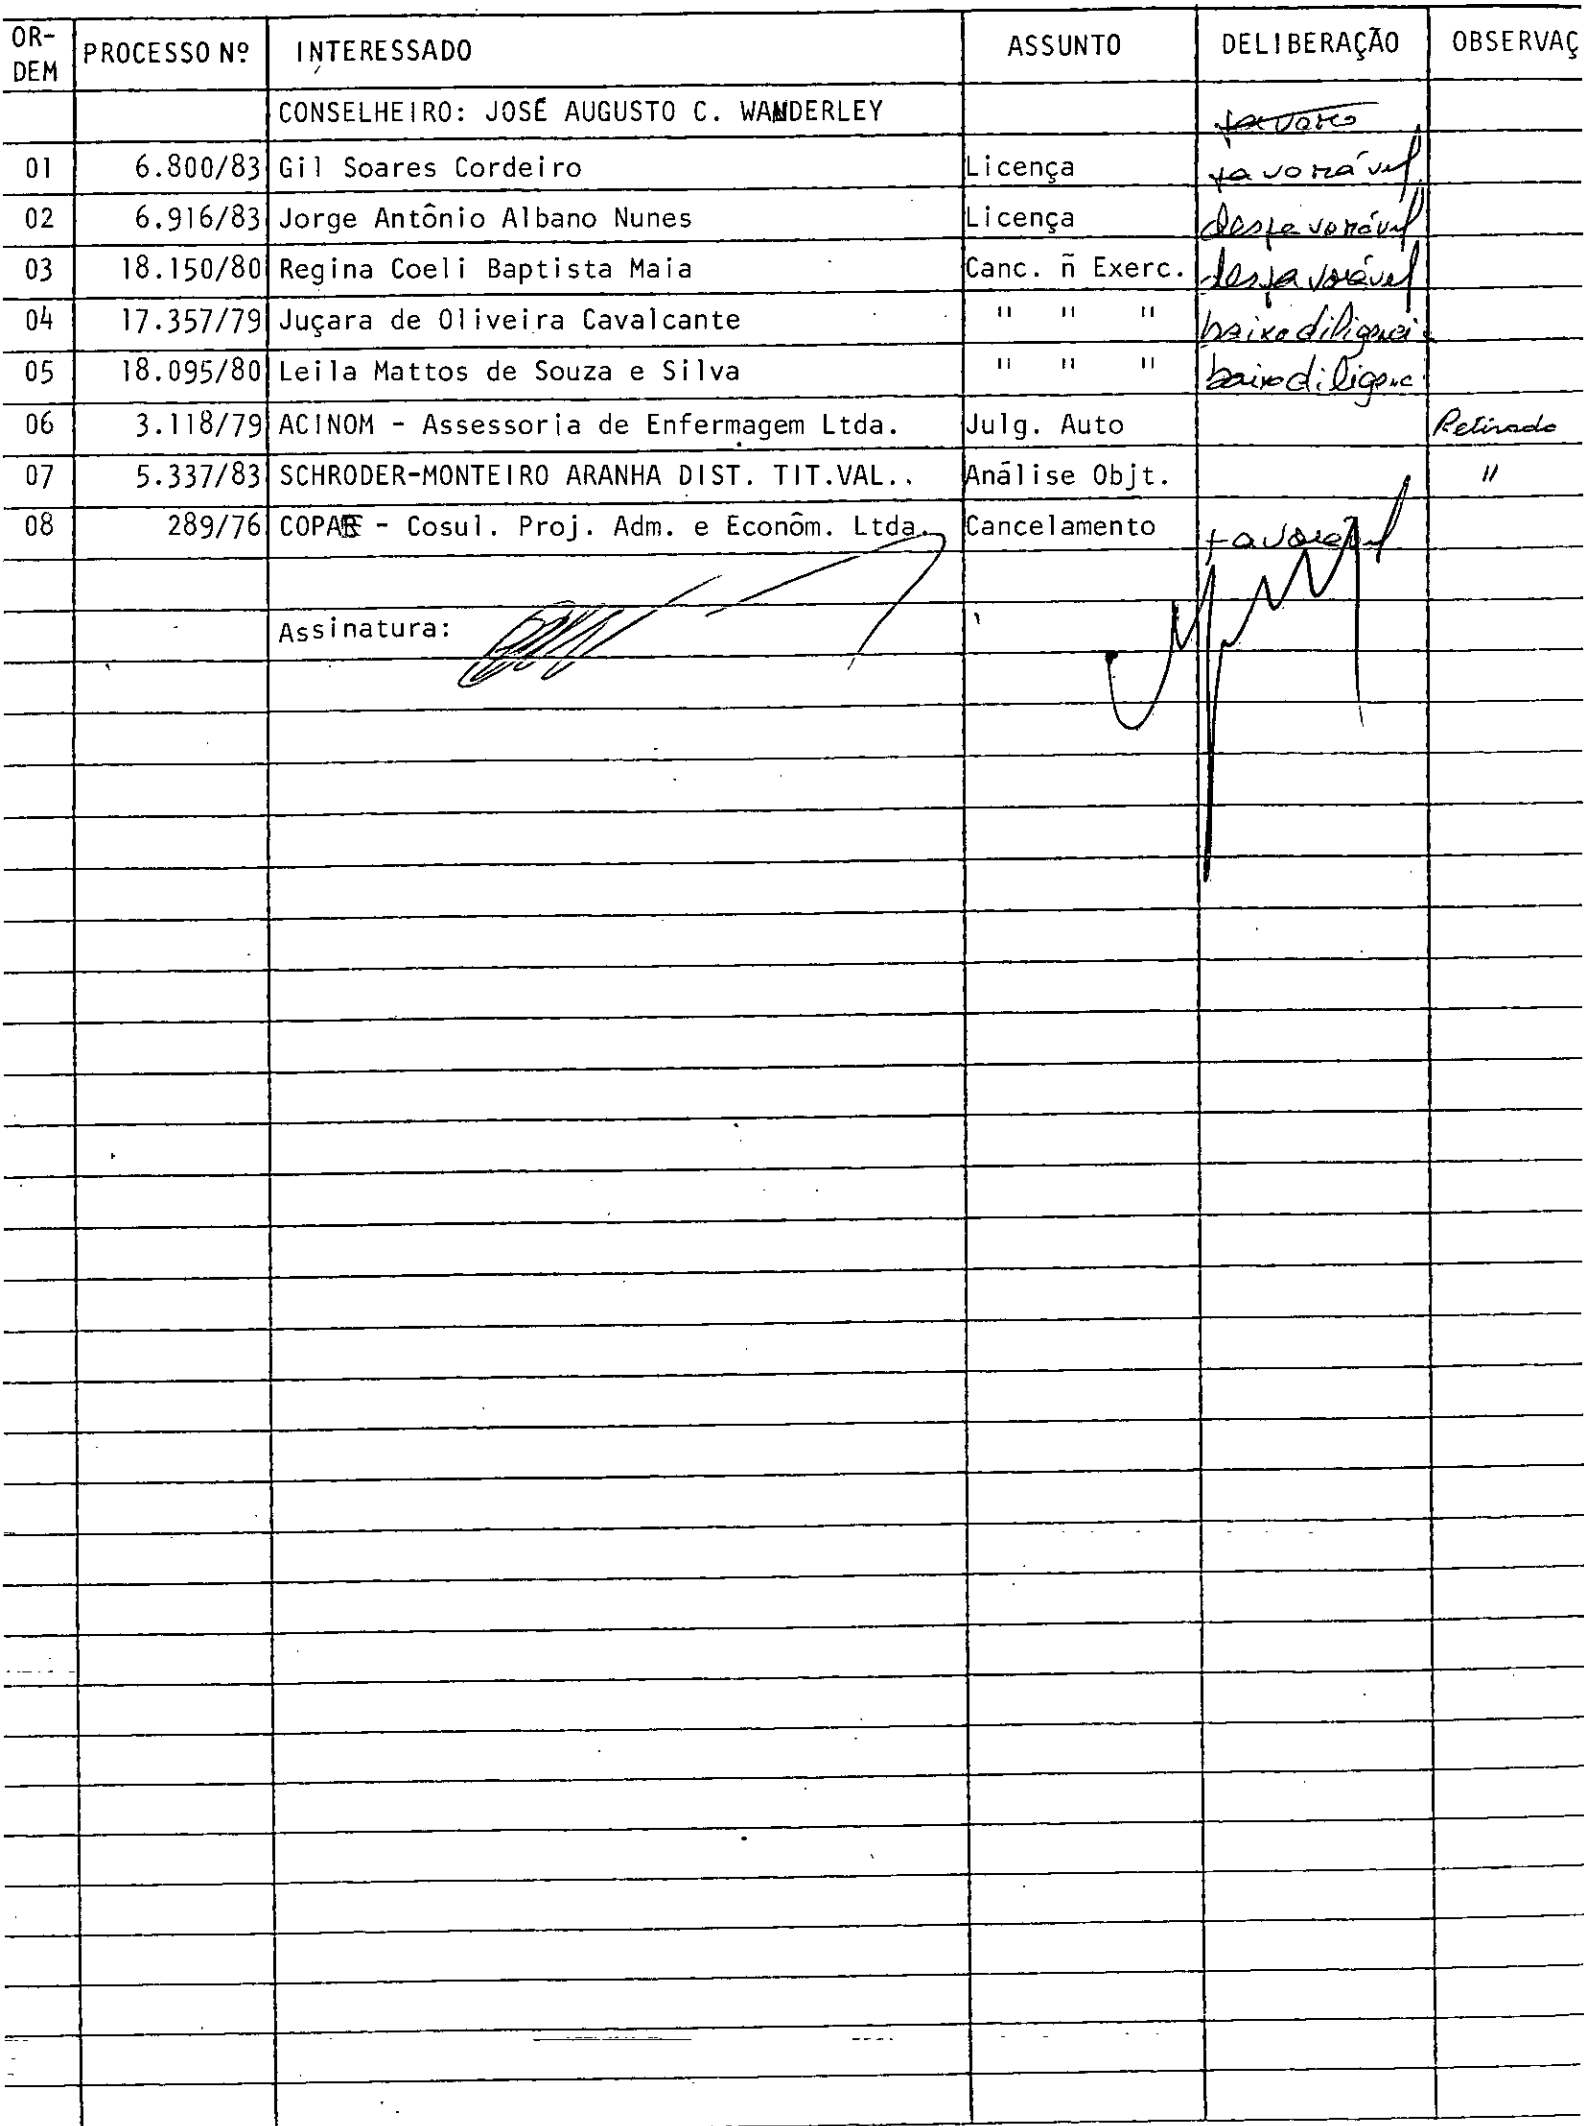 OR-
DEM PROCESSO Nº INTERESSADO ASSUNTO DELIBERAÇÃO OBSERVAÇ
CONSELHEIRO: JOSÉ AUGUSTO C. WANDERLEY
01 6.800/83 Gil Soares Cordeiro Licença favorável
02 6.916/83 Jorge Antônio Albano Nunes Licença desfavorável
03 18.150/80 Regina Coeli Baptista Maia Canc. ñ Exerc. desfavorável
04 17.357/79 Juçara de Oliveira Cavalcante " " " baixa diligencia
05 18.095/80 Leila Mattos de Souza e Silva " " " baixa diligenc
06 3.118/79 ACINOM - Assessoria de Enfermagem Ltda. Julg. Auto Retirado
07 5.337/83 SCHRODER-MONTEIRO ARANHA DIST. TIT.VAL.. Análise Objt. "
08 289/76 - Cosul. Proj. Adm. e Econôm. Ltda. Cancelamento favorável
Assinatura: